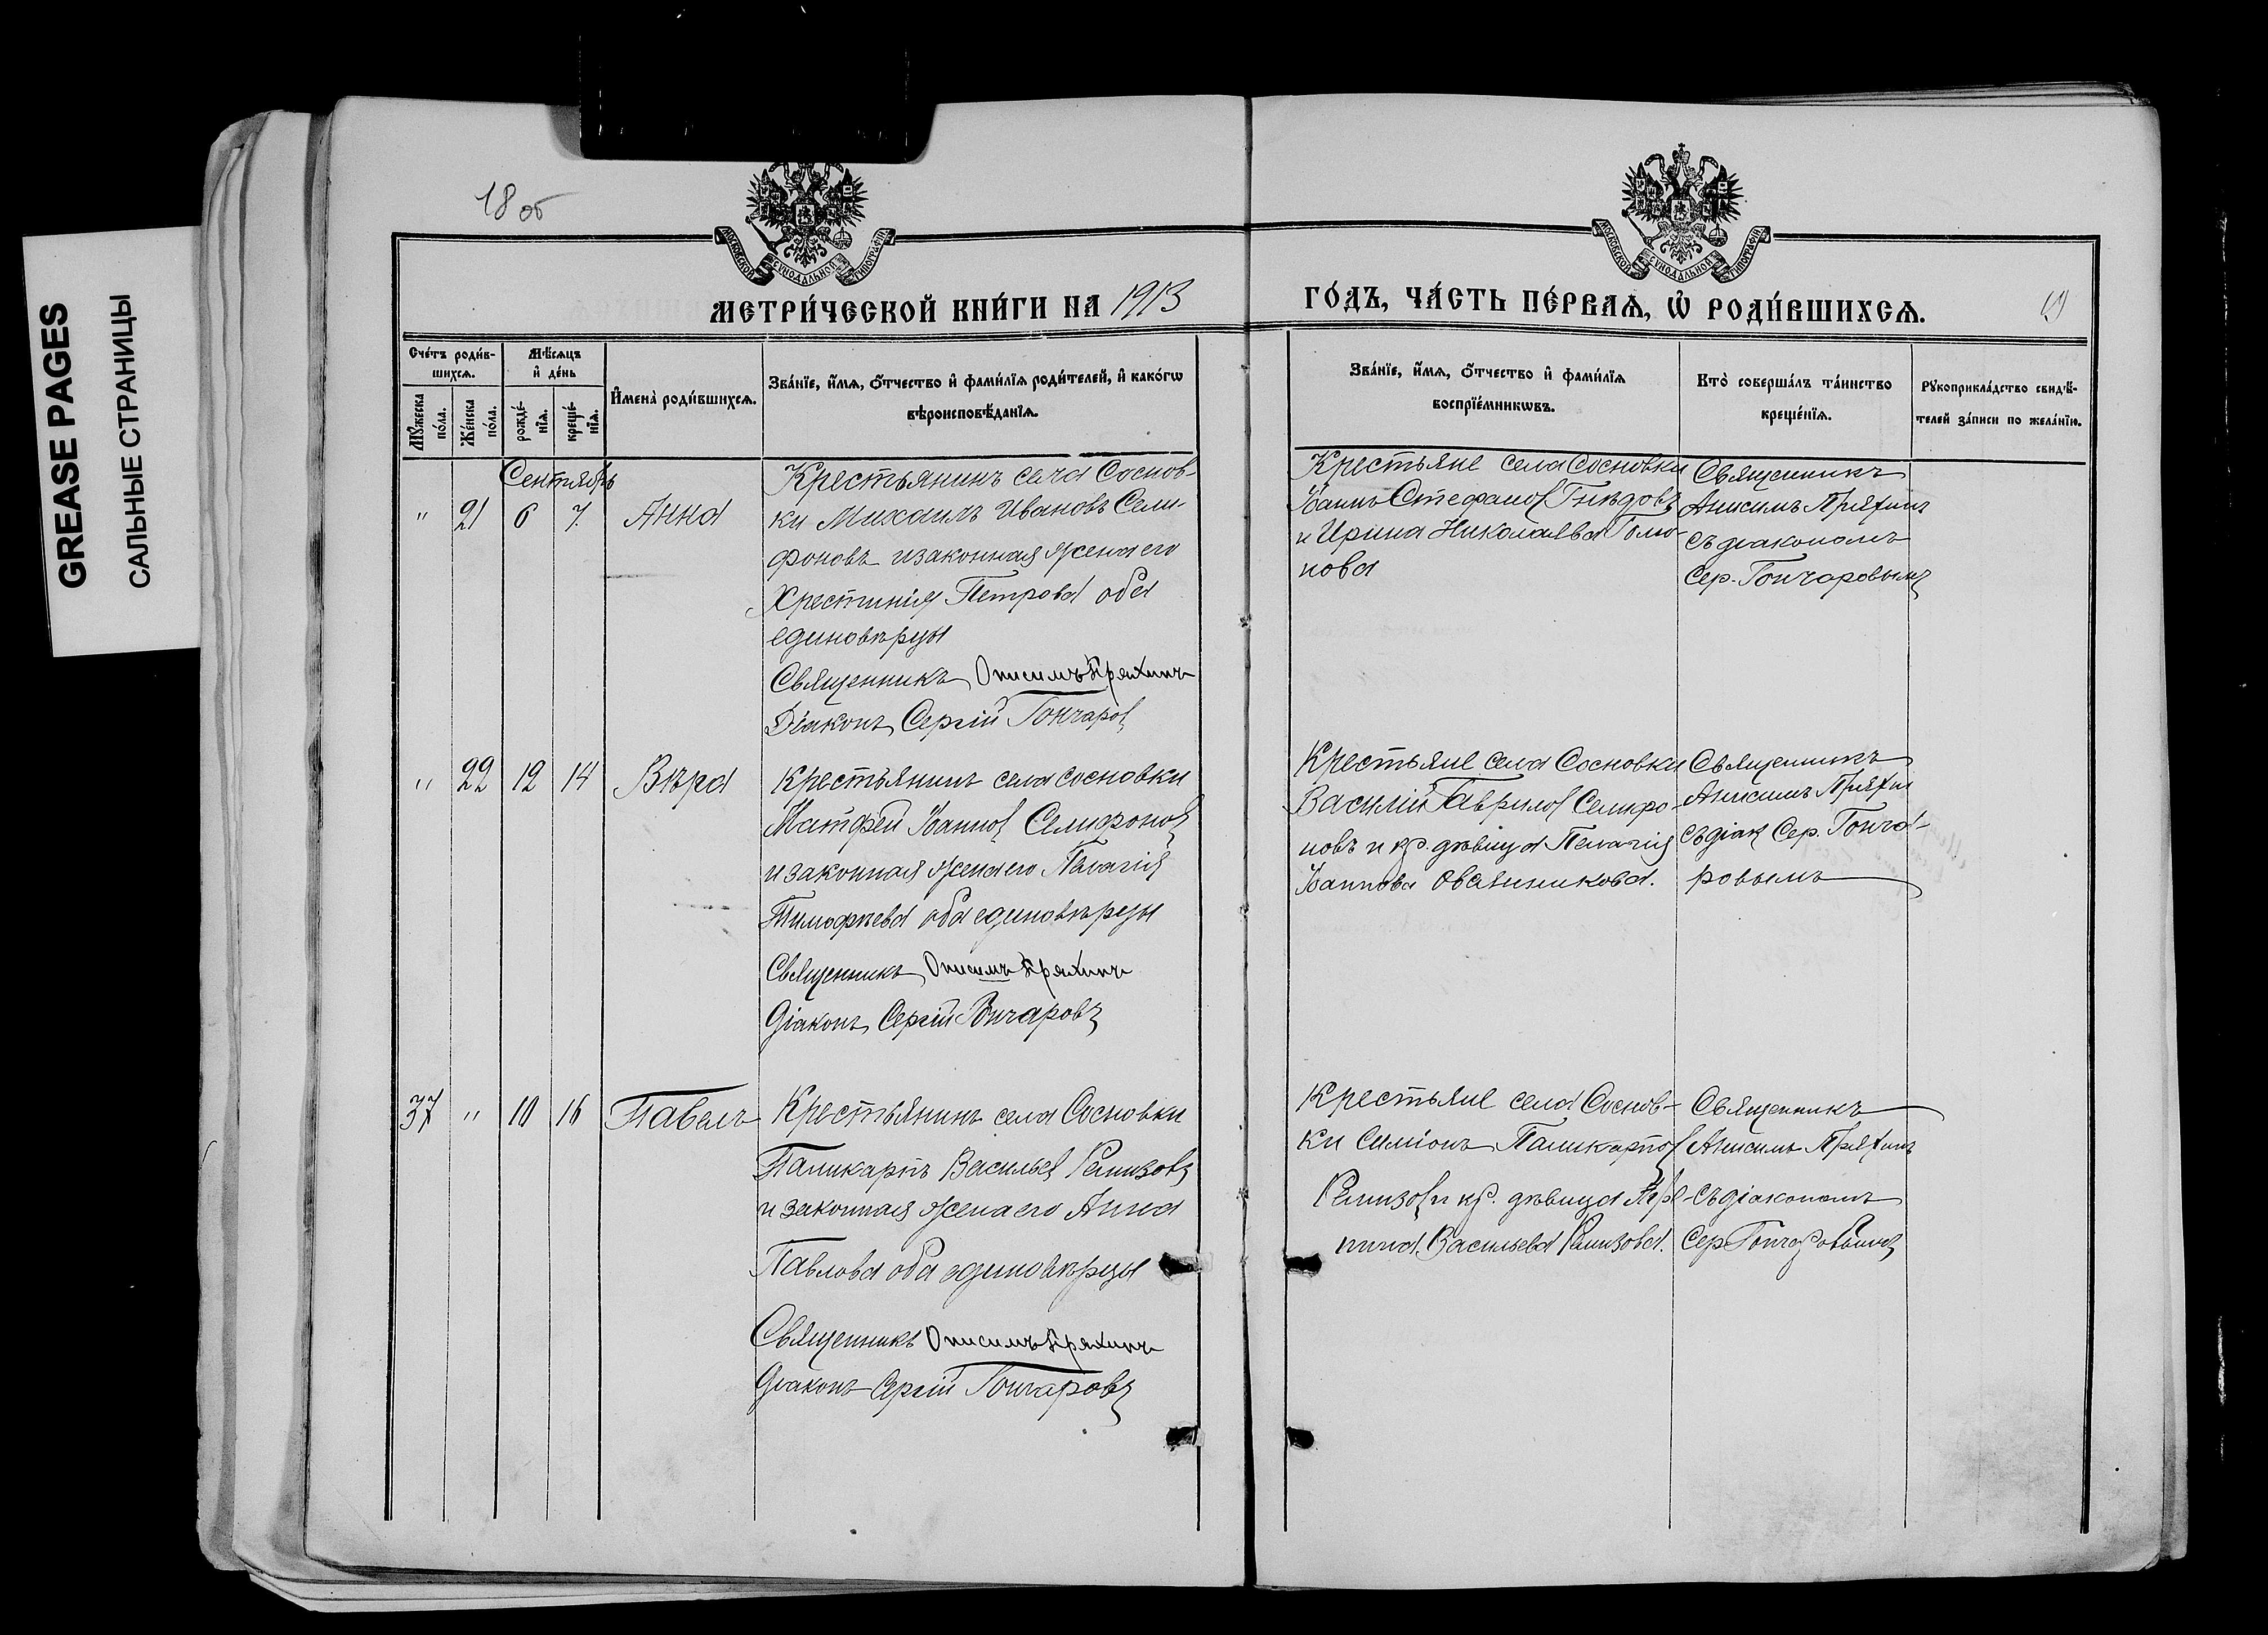 GREASE PAGES
САЛЬНЫЕ СТРАНИЦЫ
18 об
МОСКОВСКОЙ СУНОДАЛЬНОЙ ТИПОГРАФІИ
МОСКОВСКОЙ СУНОДАЛЬНОЙ ТИПОГРАФІИ
МЕТРИ́ЧЕСКОЙ КНИ́ГИ НА 1913
ГО́ДЪ, ЧА́СТЬ ПЕ́РВАѦ, Ѡ҆ РОДИ́ВШИХСѦ.
Сче́тъ роди́в-
шихсѧ.
Мѣ́сѧцъ
и҆ де́нь
Мꙋ́жеска
по́ла.
Же́нска
по́ла.
рожде́-
нїѧ.
креще́-
нїѧ.
И҆мена̀ роди́вшихсѧ.
Зва́нїе, и҆́мѧ, ѻ҆́тчество и҆ фами́лїѧ роди́телей, и҆ како́гѡ
вѣроисповѣ́данїѧ.
Зва́нїе, и҆́мѧ, ѻ҆́тчество и҆ фами́лїѧ
воспрїе́мникѡвъ.
Кто̀ соверша́лъ та́инство
креще́нїѧ.
Рꙋкоприкла́дство свидѣ́-
телей за́писи по жела́нїю.
Сентябрь
" 21 6 7. Анна
Крестьянинъ села Соснов-
ки Михаилъ Ивановъ Сели-
фоновъ и законная жена его
Хрестинія Петрова оба
единовѣрцы
Священникъ Онисимъ Пряхинъ
Діаконъ Сергій Гончаров
Крестьяне села Сосновки
Іоаннъ Стефанов Гнѣдовъ
и Ирина Николаева
нова
Священникъ
Анисимъ Пряхинъ
съ діакономъ
Сер. Гончаровымъ
" 22 12 14 Вѣра
Крестьянинъ села Сосновки
Матфей Іоаннов Селифонов
и законная жена его Пелагія
Тимофѣева оба единовѣрцы
Священникъ Онисимъ Пряхинъ
Діаконъ Сергій Гончаровъ
Крестьяне села Сосновки
Василій Гаврилов Селифо-
новъ и кр. дѣвица Пелагія
Іоаннова Овчинникова.
Священникъ
Анисимъ Пряхин
съ діак Сер. Гонча-
ровымъ
37 " 10 16 Павелъ
Крестьянинъ села Сосновки
Паликарпъ Васильев Ремизовъ
и законная жена его Анна
Павлова оба единовѣрцы
Священникъ Онисимъ Пряхинъ
Діаконъ Сергій Гончаровъ
Крестьяне села Соснов-
ки Симіонъ Паликарпов
Ремизов и кр. дѣвица
Васильева Ремизова.
Священникъ
Анисимъ Пряхинъ
съ діакономъ
Сер Гончаровымъ